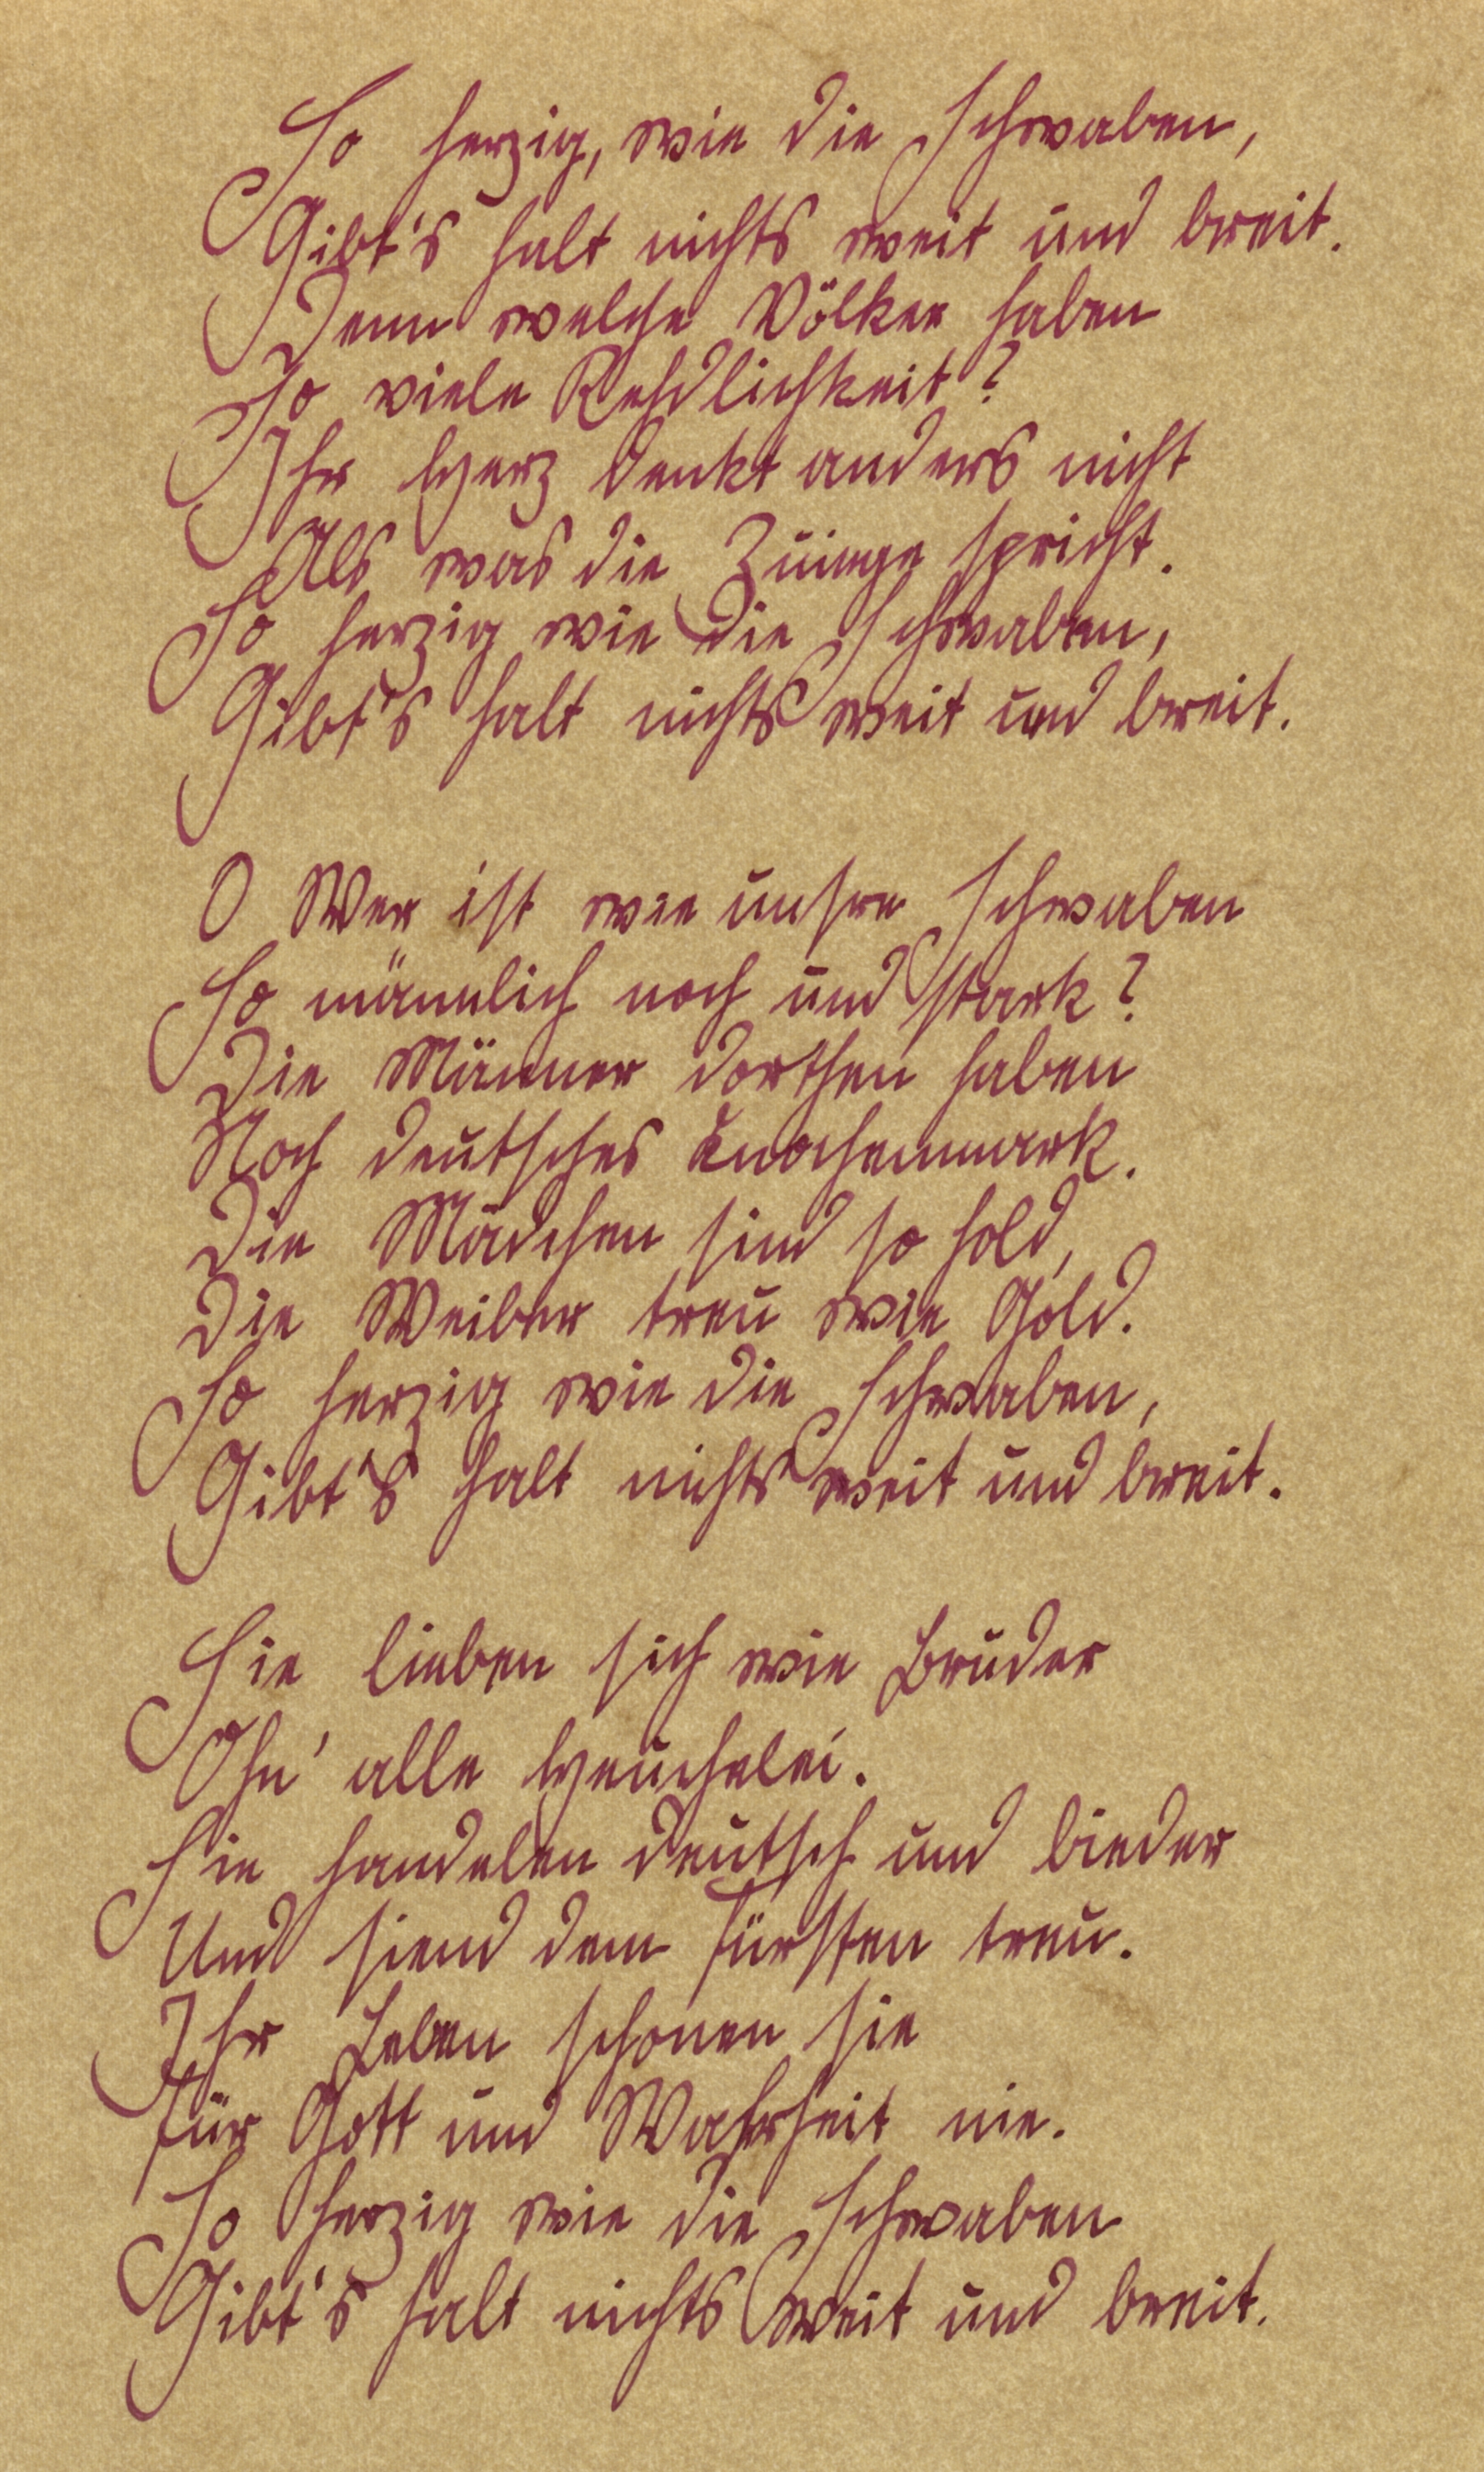 So herzig, wie die Schwaben,
Gibt's halt nichts weit und breit.
Denn welche Völker haben
So viele Rehdlichkeit?
Ihr Herz denkt anders nicht
Als was die Zunge spricht.
So herzig wie die Schwaben,
Gibt's halt nichts weit und breit.
O Wer ist wie unsre Schwaben
So männlich noch und stark?
Die Männer dorthen haben
Noch deutsches Knochenmark.
Die Mädchen sind so hold,
Die Weiber treu wie Gold.
So herzig wie die Schwaben,
Gibt's halt nichts weit und breit.
Sie lieben sich wie Bruder
Ohn' alle Heuchelei.
Sie handelen deutsch und bieder
Und siend dem Fürsten treu.
Ihr Leben schonen sie
Für Gott und Wahrheit nie.
So herzig wie die Schwaben
Gibt's halt nichts weit und breit.